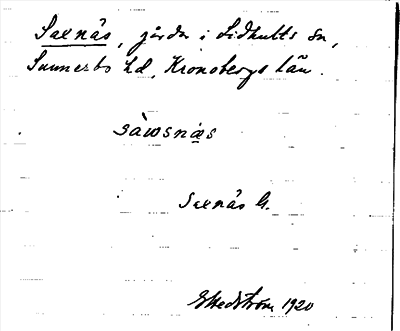 Saxnäs, gårdar i Lidhults sn,
Sunnerbo hd, Kronobergs län.
sàwsnæs
Saxnäs G.
EHedström 1920